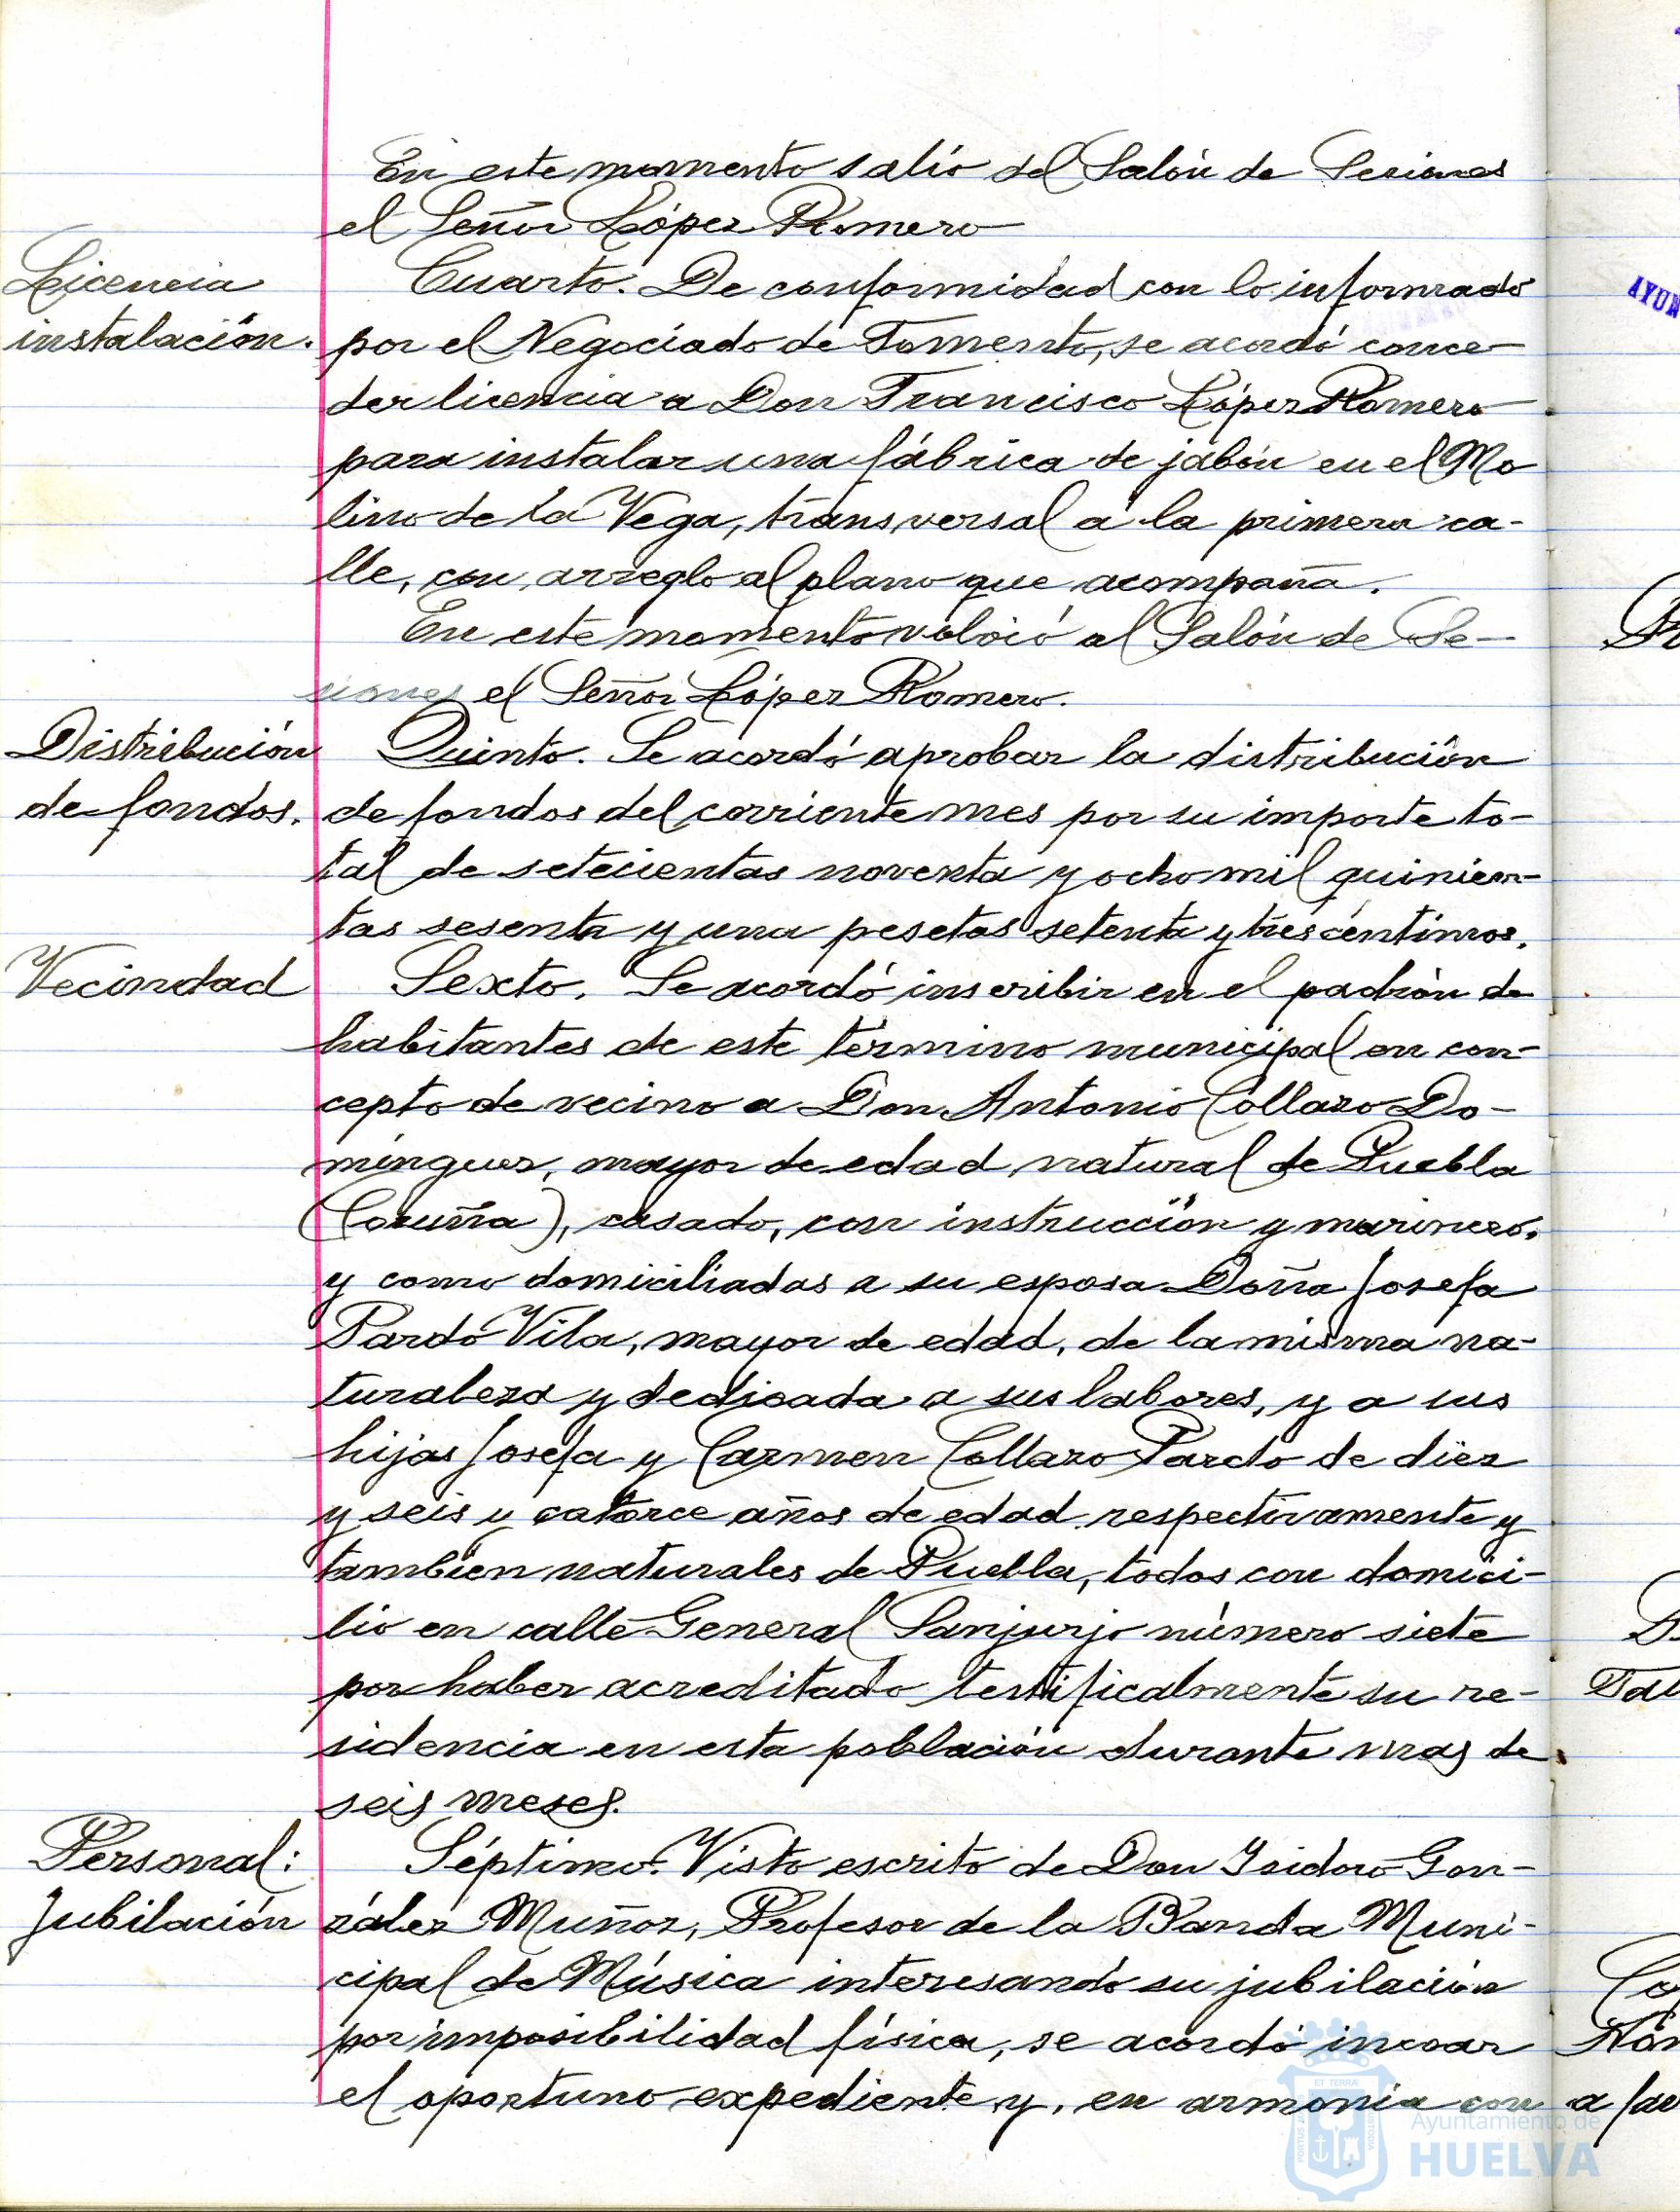 En este momento salió del Salón de Sesiones
el Señor López Romero
Licencia
instalación.
Cuarto. De conformidad con lo informado
por el Negociado de Fomento, se acordó conce-
der licencia a Don Francisco López Romero
para instalar una fábrica de jabón en el Mo
lino de la Vega, transversal a la primera ca-
lle, con arreglo al plano que acompaña.
En este momento volvió al Salón de Se-
siones el Señor López Romero.
Distribución
de fondos.
Quinto. Se acordó aprobar la distribución
de fondos del corriente mes por su importe to-
tal de setecientas noventa y ocho mil quinien-
tas sesenta y una pesetas setenta y tres céntimos.
Vecindad
Sexto. Se acordó inscribir en el padrón de
habitantes de este término municipal en con-
cepto de vecino a Don Antonio Collazo Do-
minguez, mayor de edad, natural de Puebla
(Coruña), casado, con instrucción y marinero,
y como domiciliadas a su esposa Doña Josefa
Pardo Vila, mayor de edad, de la misma na-
turaleza y dedicada a sus labores, y a sus
hijas Josefa y Carmen Collazo Pardo de diez
y seis y catorce años de edad respectivamente y
tambien naturales de Puebla, todos con domici-
lio en calle General Sanjurjo número siete
por haber acreditado testificalmente su re-
sidencia en esta población durante mas de
seis meses.
Personal:
Jubilación
Séptimo. Visto escrito de Don Ysidoro Gon-
zález Muñoz, Profesor de la Banda Muni-
cipal de Música interesando su jubilación
por imposibilidad física, se acordó incoar
el oportuno expediente y, en armonía con
Ayuntamiento de
HUELVA